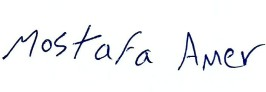 Mostafa Amer